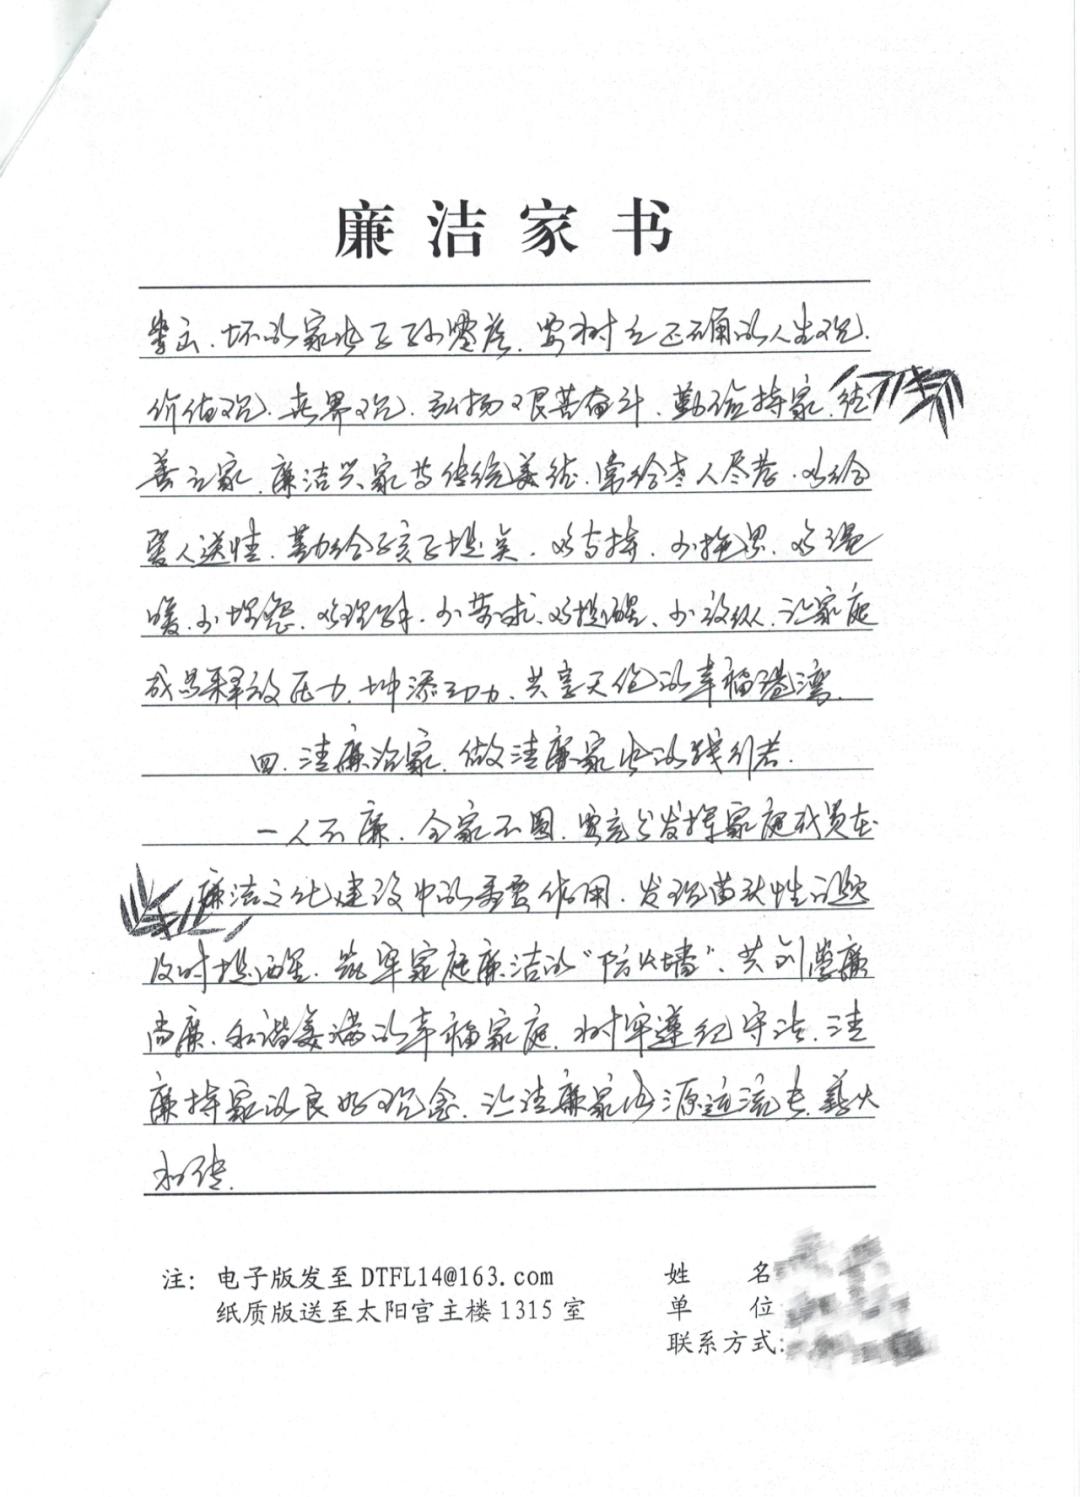 廉洁家书
辈出、坏的家风子孙零落，要树立正确的人生观、
价值观、世界观，弘扬艰苦奋斗、勤俭持家、积
善之家、廉洁兴家等传统美德，常给老人尽孝，多给
爱人送情，勤给孩子提点，多支持、少拖累，多温
暖、少埋怨，多理解、少苛求，多提醒、少放纵，让家庭
成为释放压力、增添动力、共享天伦的幸福港湾。
四、清廉治家，做清廉家风的践行者。
一人不廉，全家不圆，要充分发挥家庭成员在
廉洁文化建设中的重要作用，发现苗头性问题
及时提醒，筑牢家庭廉洁的“防火墙”，共创学廉
尚廉、和谐美满的幸福家庭，树牢遵纪守法、清
廉持家的良好观念，让清廉家风源远流长、薪火
相传。
注：电子版发至DTFL14@163.com
纸质版送至太阳宫主楼1315室
姓 名
单 位
联系方式: